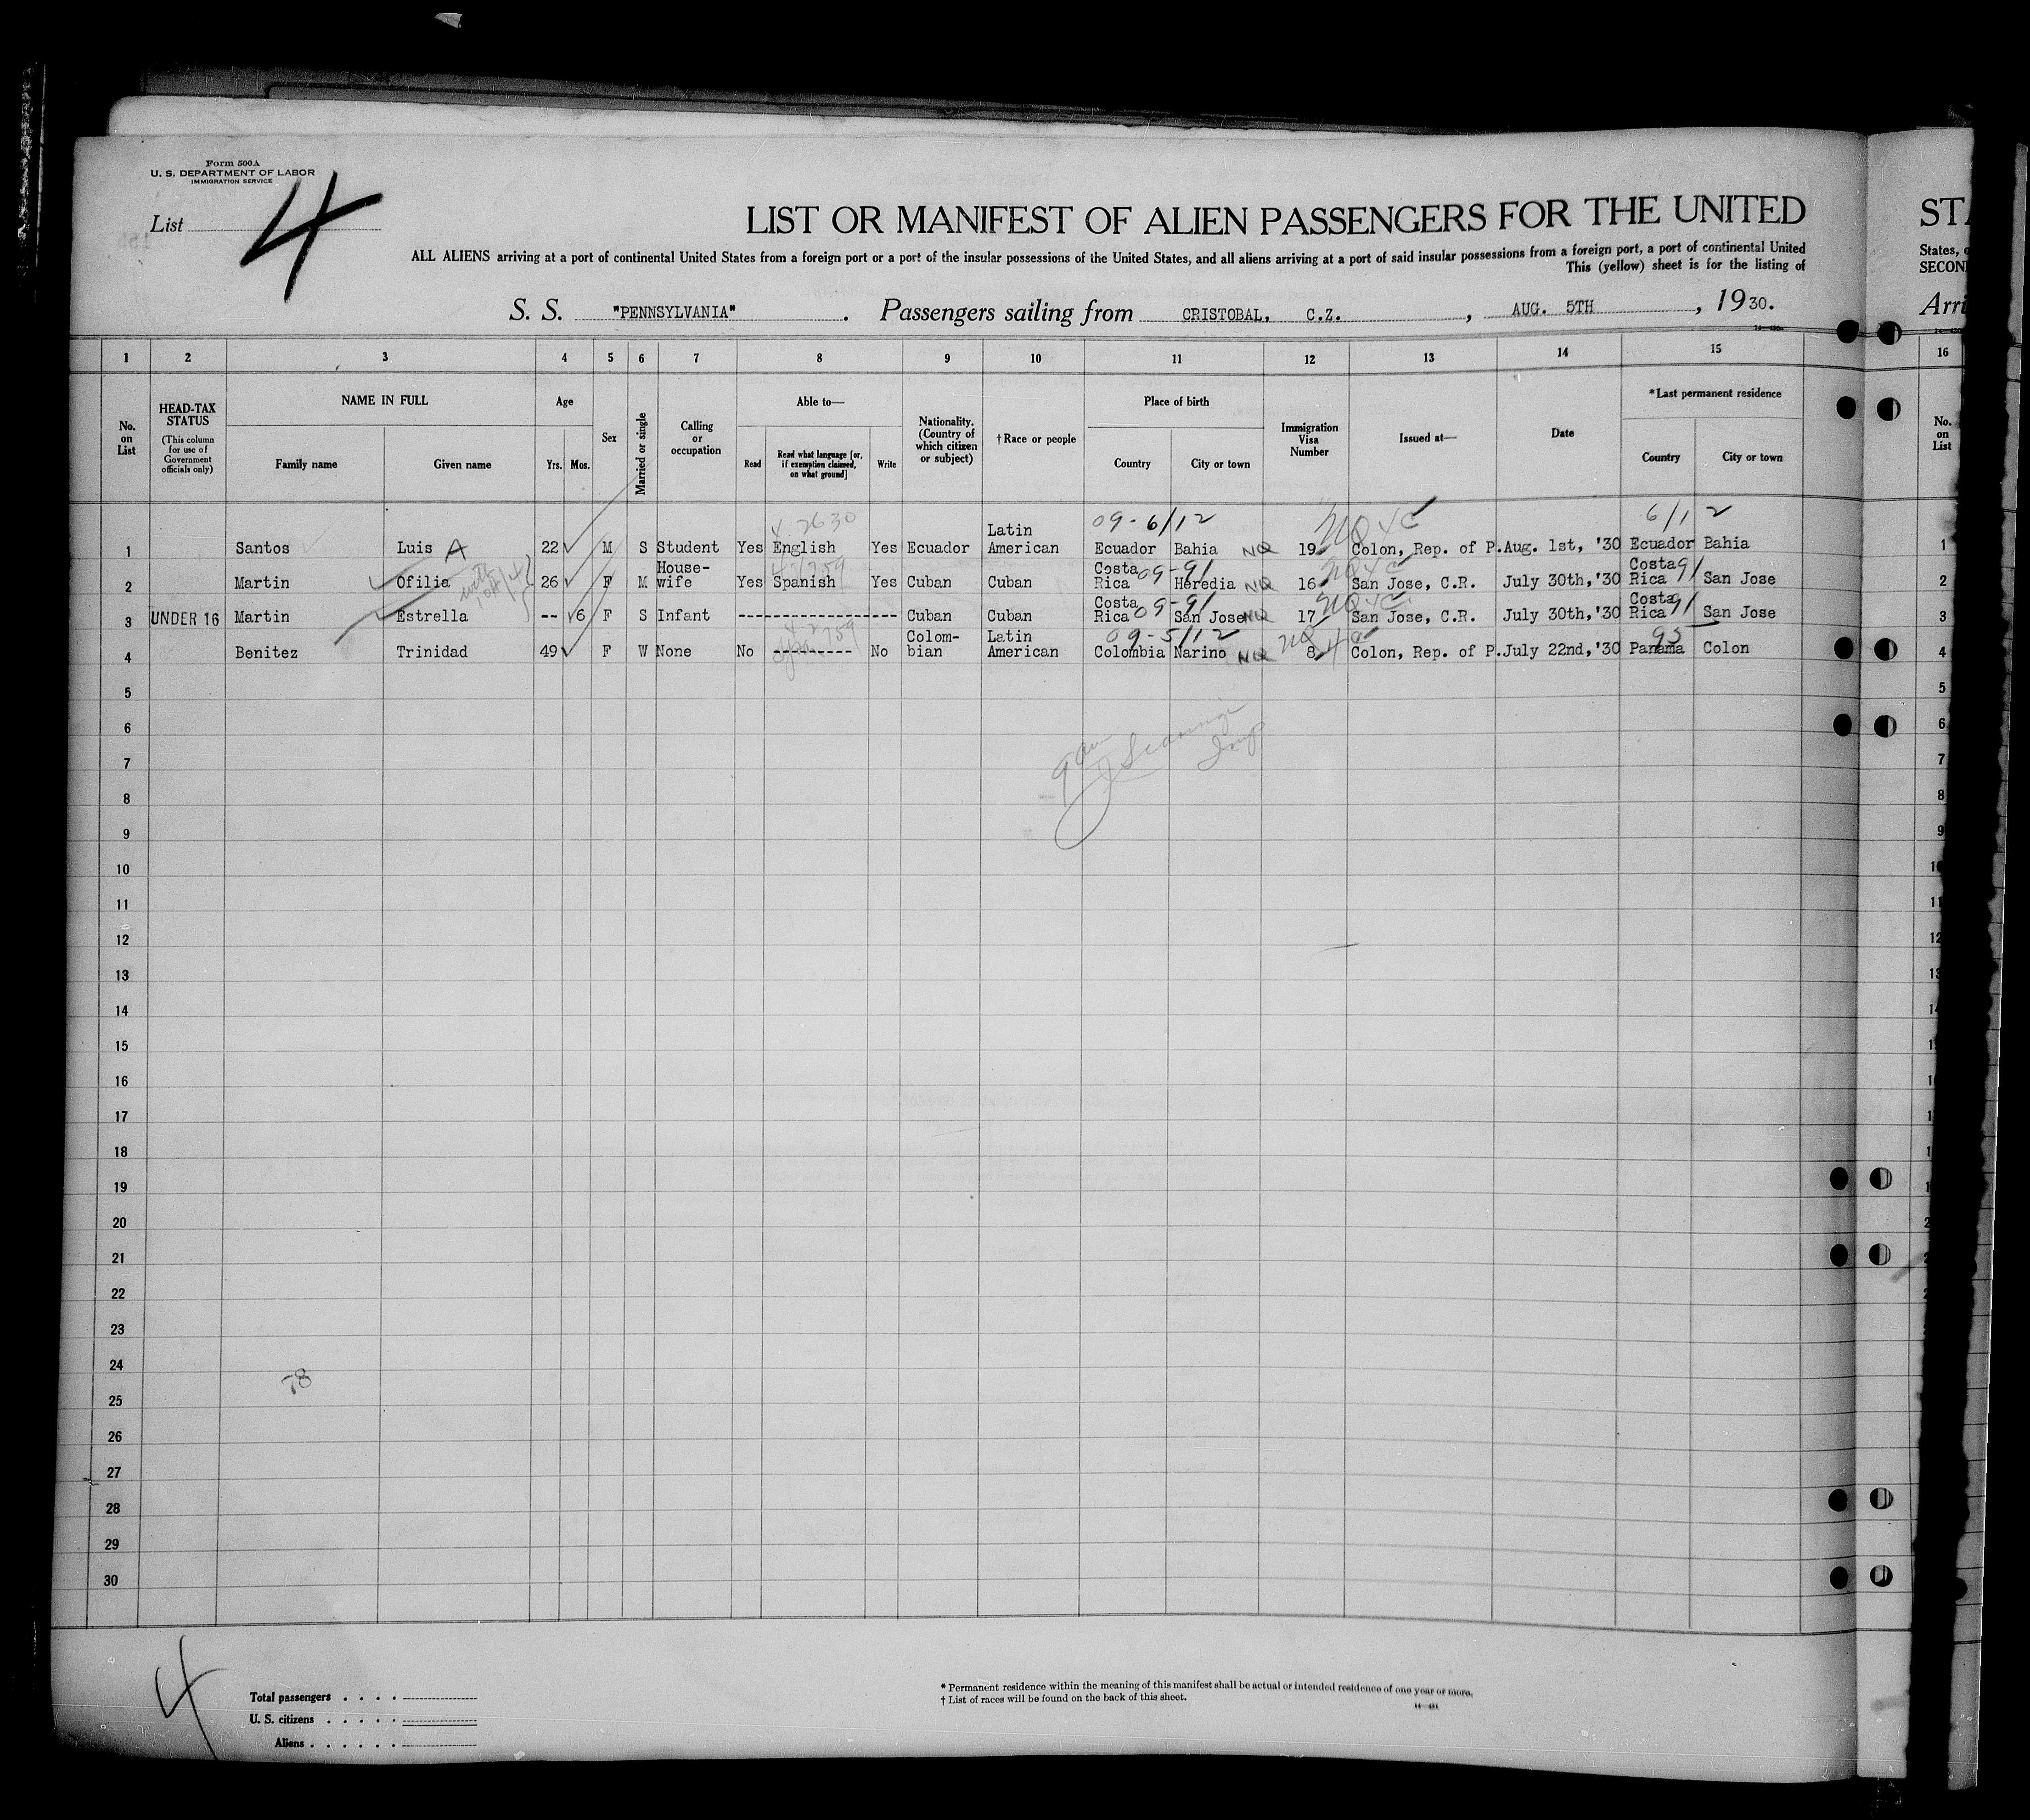 Form 500A
U. S. DEPARTMENT OF LABOR
IMMIGRATION SERVICE
List 4
LIST OR MANIFEST OF ALIEN PASSENGERS FOR THE UNITED
ALL ALIENS arriving at a port of continental United States from a foreign port or a port of the insular possessions of the United States, and all aliens arriving at a port of said insular possessions from a foreign port, a port of continental United
This (yellow) sheet is for the listing of
S. S. "PENNSYLVANIA". Passengers sailing from CRISTOBAL, C.Z., AUG. 5TH, 1930.
STA
States, o
SECON
Arri
1 2 3 4 5 6 7 8 9 10 11 12 13 14 15 16
No. on List
HEAD-TAX STATUS (This column for use of Government officials only)
NAME IN FULL
Family name
Given name
Age
Yrs. Mos.
Sex
Married or single
Calling or occupation
Able to—
Read
Read what language [or, if exemption claimed, on what ground]
Write
Nationality. (Country of which citizen or subject)
†Race or people
Place of birth
Country
City or town
Immigration Visa Number
Issued at—
Date
*Last permanent residence
Country
City or town
No. on List
4 2630 09-6/12 NQ 4C 6/12
1 Santos Luis A 22 M S Student Yes English Yes Ecuador Latin American Ecuador Bahia NQ 19 Colon, Rep. of P. Aug. 1st, '30 Ecuador Bahia 1
2 Martin Ofilia 26 F M House-wife Yes Spanish Yes Cuban Cuban Costa Rica 09-91 Heredia NQ 16 NQ 4C San Jose, C.R. July 30th,'30 Costa Rica 91 San Jose 2
3 UNDER 16 Martin Estrella -- 6 F S Infant ------------------ Cuban Cuban Costa Rica 09-91 San Jose NQ 17 NQ 4C San Jose, C.R. July 30th,'30 Costa Rica 91 San Jose 3
09-5/12 NQ 4C 95
4 Benitez Trinidad 49 F W None No ---------- No Colom-bian Latin American Colombia Narino NQ 8 Colon, Rep. of P. July 22nd,'30 Panama Colon 4
5 5
6 6
7 7
8 8
9 9
10
11 11
12 12
13
14
15
16
17
18
19
20
21
22
23
24
78
25
26
27
28
29
30
4
Total passengers . . . .
U. S. citizens . . . . .
Aliens . . . . . .
* Permanent residence within the meaning of this manifest shall be actual or intended residence of one year or more.
† List of races will be found on the back of this sheet.